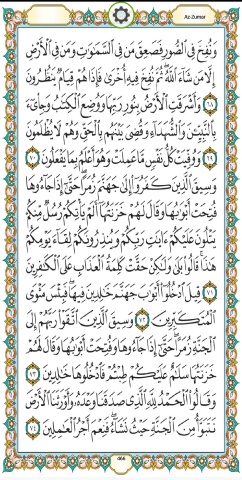 Az-Zumar
وَنُفِخَ فِي ٱلصُّورِ فَصَعِقَ مَن فِي ٱلسَّمَٰوَٰتِ وَمَن فِي ٱلْأَرْضِ
إِلَّا مَن شَآءَ ٱللَّهُ ثُمَّ نُفِخَ فِيهِ أُخْرَىٰ فَإِذَا هُمْ قِيَامٌ يَنظُرُونَ
٦٨ وَأَشْرَقَتِ ٱلْأَرْضُ بِنُورِ رَبِّهَا وَوُضِعَ ٱلْكِتَٰبُ وَجِا۟ىٓءَ
بِٱلنَّبِيِّـۧنَ وَٱلشُّهَدَآءِ وَقُضِيَ بَيْنَهُم بِٱلْحَقِّ وَهُمْ لَا يُظْلَمُونَ
٦٩ وَوُفِّيَتْ كُلُّ نَفْسٍ مَّا عَمِلَتْ وَهُوَ أَعْلَمُ بِمَا يَفْعَلُونَ ٧٠
وَسِيقَ ٱلَّذِينَ كَفَرُوٓا۟ إِلَىٰ جَهَنَّمَ زُمَرًا حَتَّىٰٓ إِذَا جَآءُوهَا
فُتِحَتْ أَبْوَٰبُهَا وَقَالَ لَهُمْ خَزَنَتُهَآ أَلَمْ يَأْتِكُمْ رُسُلٌ مِّنكُمْ
يَتْلُونَ عَلَيْكُمْ ءَايَٰتِ رَبِّكُمْ وَيُنذِرُونَكُمْ لِقَآءَ يَوْمِكُمْ
هَٰذَا قَالُوا۟ بَلَىٰ وَلَٰكِنْ حَقَّتْ كَلِمَةُ ٱلْعَذَابِ عَلَى ٱلْكَٰفِرِينَ
٧١ قِيلَ ٱدْخُلُوٓا۟ أَبْوَٰبَ جَهَنَّمَ خَٰلِدِينَ فِيهَا فَبِئْسَ مَثْوَى
ٱلْمُتَكَبِّرِينَ ٧٢ وَسِيقَ ٱلَّذِينَ ٱتَّقَوْا۟ رَبَّهُمْ إِلَى
ٱلْجَنَّةِ زُمَرًا حَتَّىٰٓ إِذَا جَآءُوهَا وَفُتِحَتْ أَبْوَٰبُهَا وَقَالَ لَهُمْ
خَزَنَتُهَا سَلَٰمٌ عَلَيْكُمْ طِبْتُمْ فَٱدْخُلُوهَا خَٰلِدِينَ ٧٣
وَقَالُوا۟ ٱلْحَمْدُ لِلَّهِ ٱلَّذِي صَدَقَنَا وَعْدَهُۥ وَأَوْرَثَنَا ٱلْأَرْضَ
نَتَبَوَّأُ مِنَ ٱلْجَنَّةِ حَيْثُ نَشَآءُ فَنِعْمَ أَجْرُ ٱلْعَٰمِلِينَ ٧٤
466